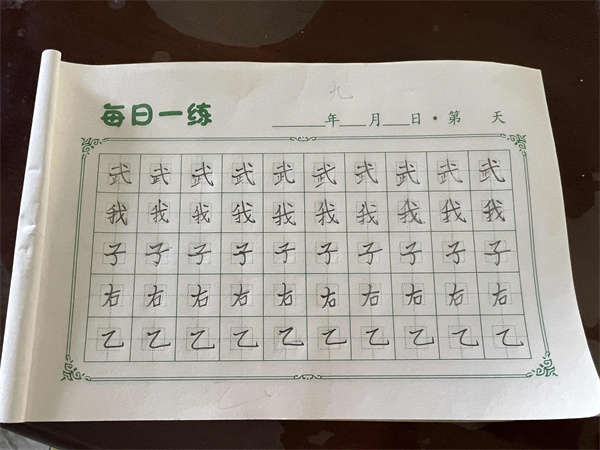 九
每日一练
年 月 日·第 天
武 武 武 武 武 武 武 武 武 武
我 我 我 我 我 我 我 我 我 我
子 子 子 子 子 子 子 子 子 子
右 右 右 右 右 右 右 右 右 右
乙 乙 乙 乙 乙 乙 乙 乙 乙 乙